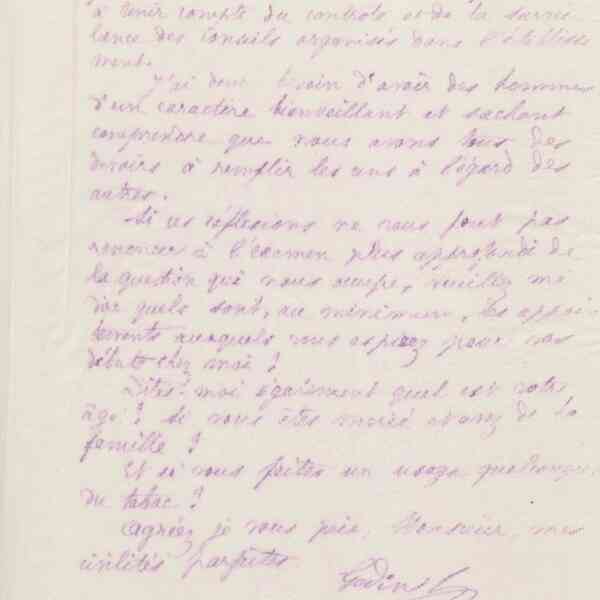 à tenir compte du contrôle et de la surveil
lance des Conseils organisés dans l'établisse
ment.
J'ai donc besoin d'avoir des hommes
d'un caractère bienveillant et sachant
comprendre que nous avons tous des
devoirs à remplir les uns à l'égard des
autres.
Si ces réflexions ne vous font pas
renoncer à l'examen plus approfondi de
la question qui nous occupe, veuillez me
dire quels sont, au minimum, les appoin
tements auxquels vous aspirez pour vos
débuts chez moi ?
Dites-moi également quel est votre
âge ? si vous êtes marié et avez de la
famille ?
Et si vous faites un usage quelconque
du tabac ?
Agréez je vous prie, Monsieur, mes
civilités parfaites
Godin